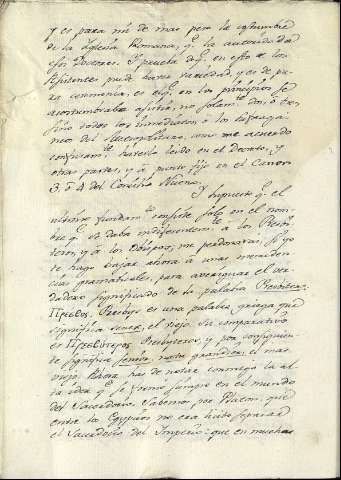 y es para mi de mas peso la costumbre
de la Iglesia Romana, q. la autoridad de
esos Doctores. Y prueba de q. en esto de los
asistentes puede haver variedad, y es de pu-
ra ceremonia, es el q. en los principios se
acostumbraba asistir, no solam.te dos, ó tres,
sino todos los inmediatos, ó los sufraga-
neos del Metropolitano, como me acuerdo
haverlo leido en el Decreto, y
otras partes, y à punto fijo en el Canon
3, ó 4 del Concilio Niceno.
Y supuesto q. el
ultimo fundam.to consiste solo en el nom-
bre q. se daba indiferentem.te à los Presbi-
teros, y à los Obispos; me perdonarás, si yo
te hago bajar ahora à unas menuden-
cias gramaticales, para averiguar el ver-
dadero significado de la palabra Presbitero.
Πρεσβυς Presbys es una palabra griega que
significa senex, el viejo. Su comparativo
es Πρεσβύτερος Presbyteros, y por consiguien-
te significa senior, natu grandior, el mas
viejo. Ahora has de notar conmigo la al-
ta idea q. se formó siempre en el mundo
del Sacerdocio. Sabemos por Platon, que
entre los Egypcios no era licito separar
el Sacerdocio del Imperio: que en muchas